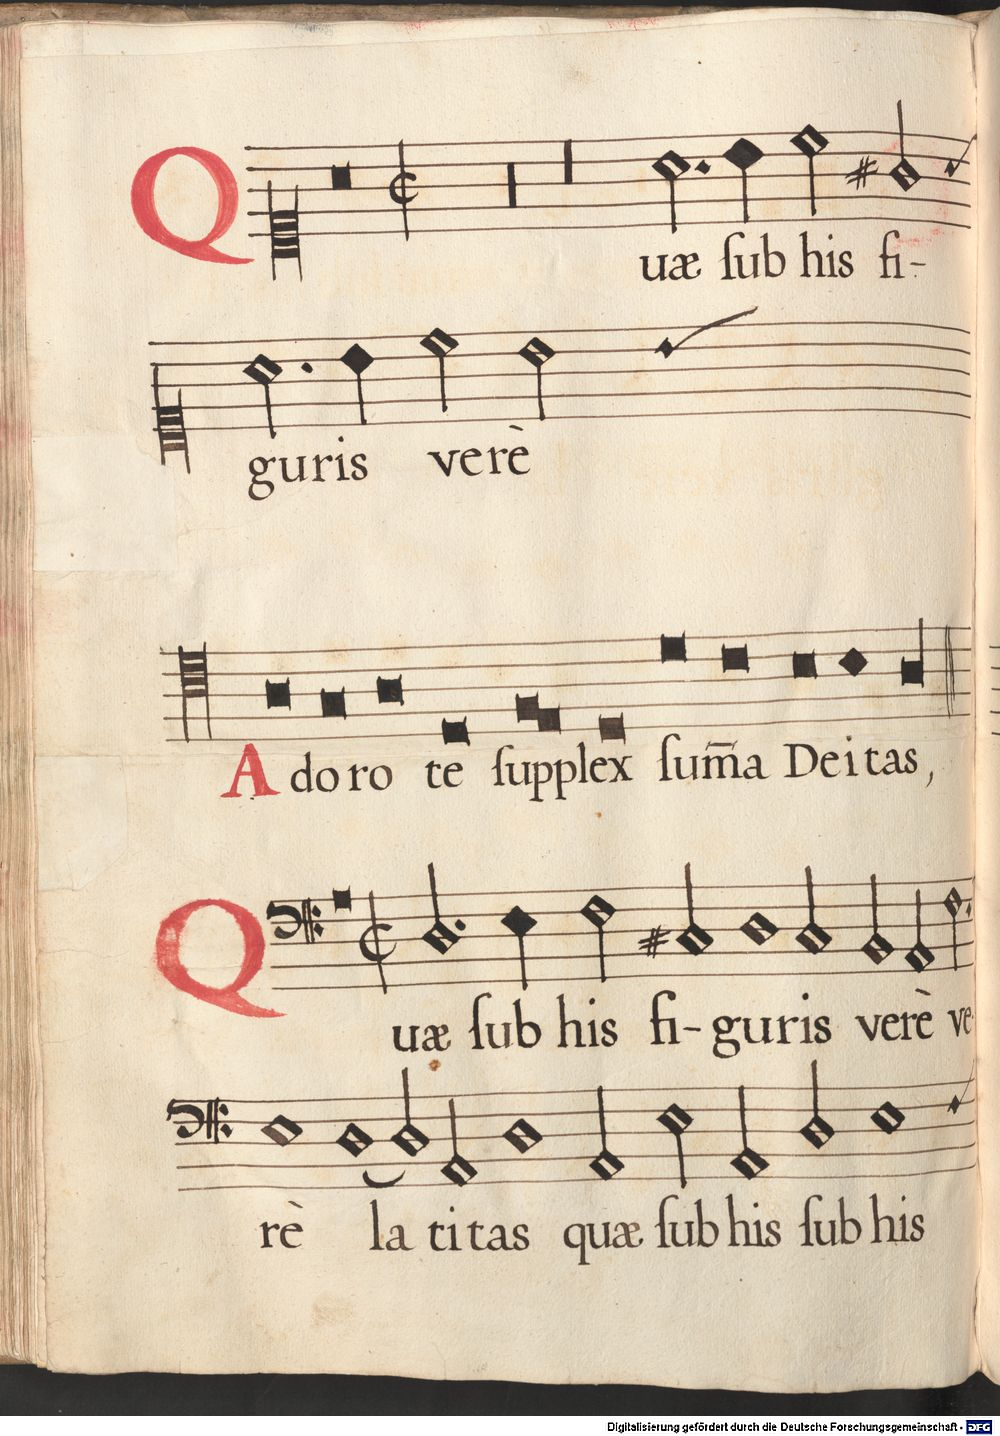 Quæ ſub his fi-
guris verè
Adoro te ſupplex ſum̄a Deitas,
Quæ ſub his fi-guris verè ve
rè la titas quæ ſub his ſub his
Digitalisierung gefördert durch die Deutsche Forschungsgemeinschaft - DFG